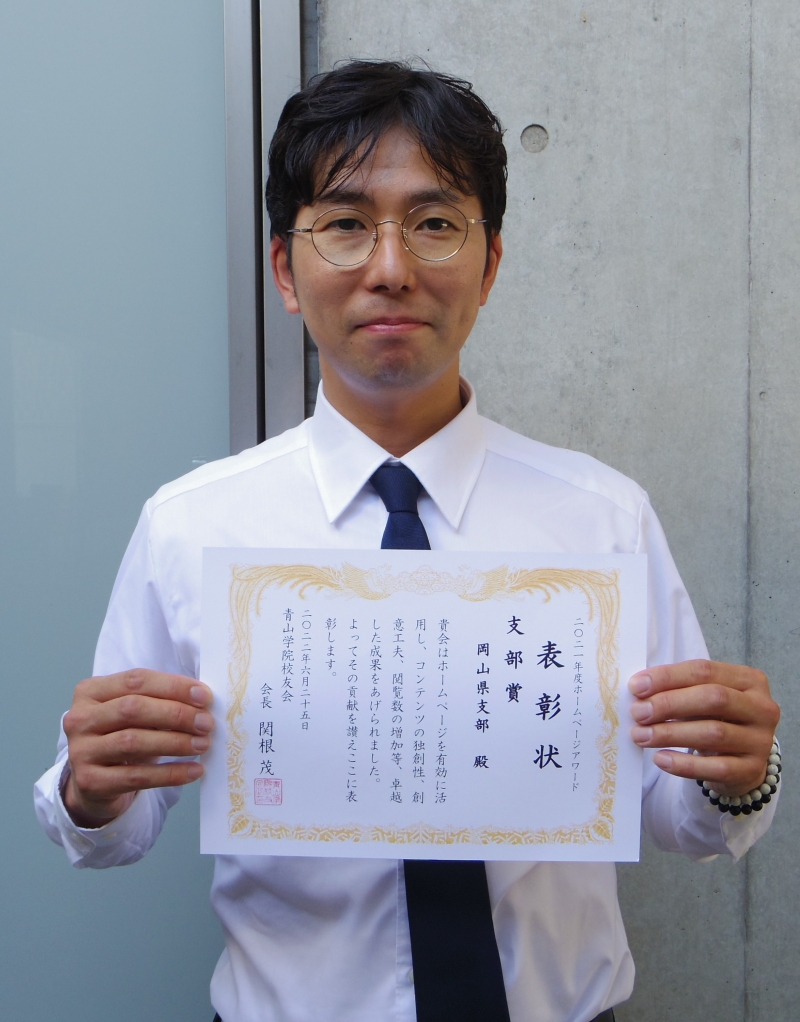 二〇二一年度ホームページアワード
表彰状
支部賞
岡山県支部 殿
貴会はホームページを有効に活
用し、コンテンツの独創性、創
意工夫、閲覧数の増加等、卓越
した成果をあげられました。
よってその貢献を讃えここに表
彰します。
二〇二二年六月二十五日
青山学院校友会
会長 関根 茂